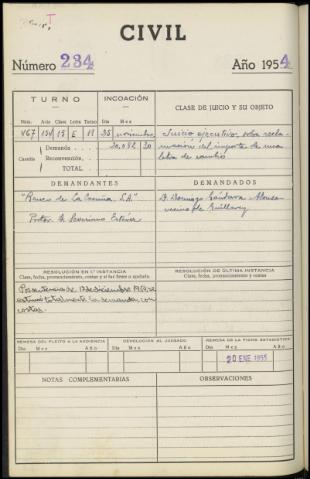 CIVIL
Número 234 Año 1954
TURNO INCOACIÓN CLASE DE JUICIO Y SU OBJETO
Núm. Año Clase Letra Tomo Día Mes
467 13 E noviembre Juicio ejecutivo sobre recla-
Cuantía Demanda 20.082 20 mación del importe de una
Reconvención letra de cambio
TOTAL
DEMANDANTES DEMANDADOS
"Banco de La Coruña, S.A." D. Domingo
Proc.
RESOLUCIÓN EN 1.ª INSTANCIA RESOLUCIÓN DE ÚLTIMA INSTANCIA
Clase, fecha, pronunciamiento, costas y si fué firme o apelada. Clase, fecha, pronunciamiento, costas.
Por sentencia de 17 de diciembre 1954 se
estimó totalmente la demanda, con
costas.
REMESA DEL PLEITO A LA AUDIENCIA DEVOLUCIÓN AL JUZGADO REMESA DE LA FICHA ESTADÍSTICA
Día Mes Año Día Mes Año Día Mes Año
20 ENE 1955
NOTAS COMPLEMENTARIAS OBSERVACIONES